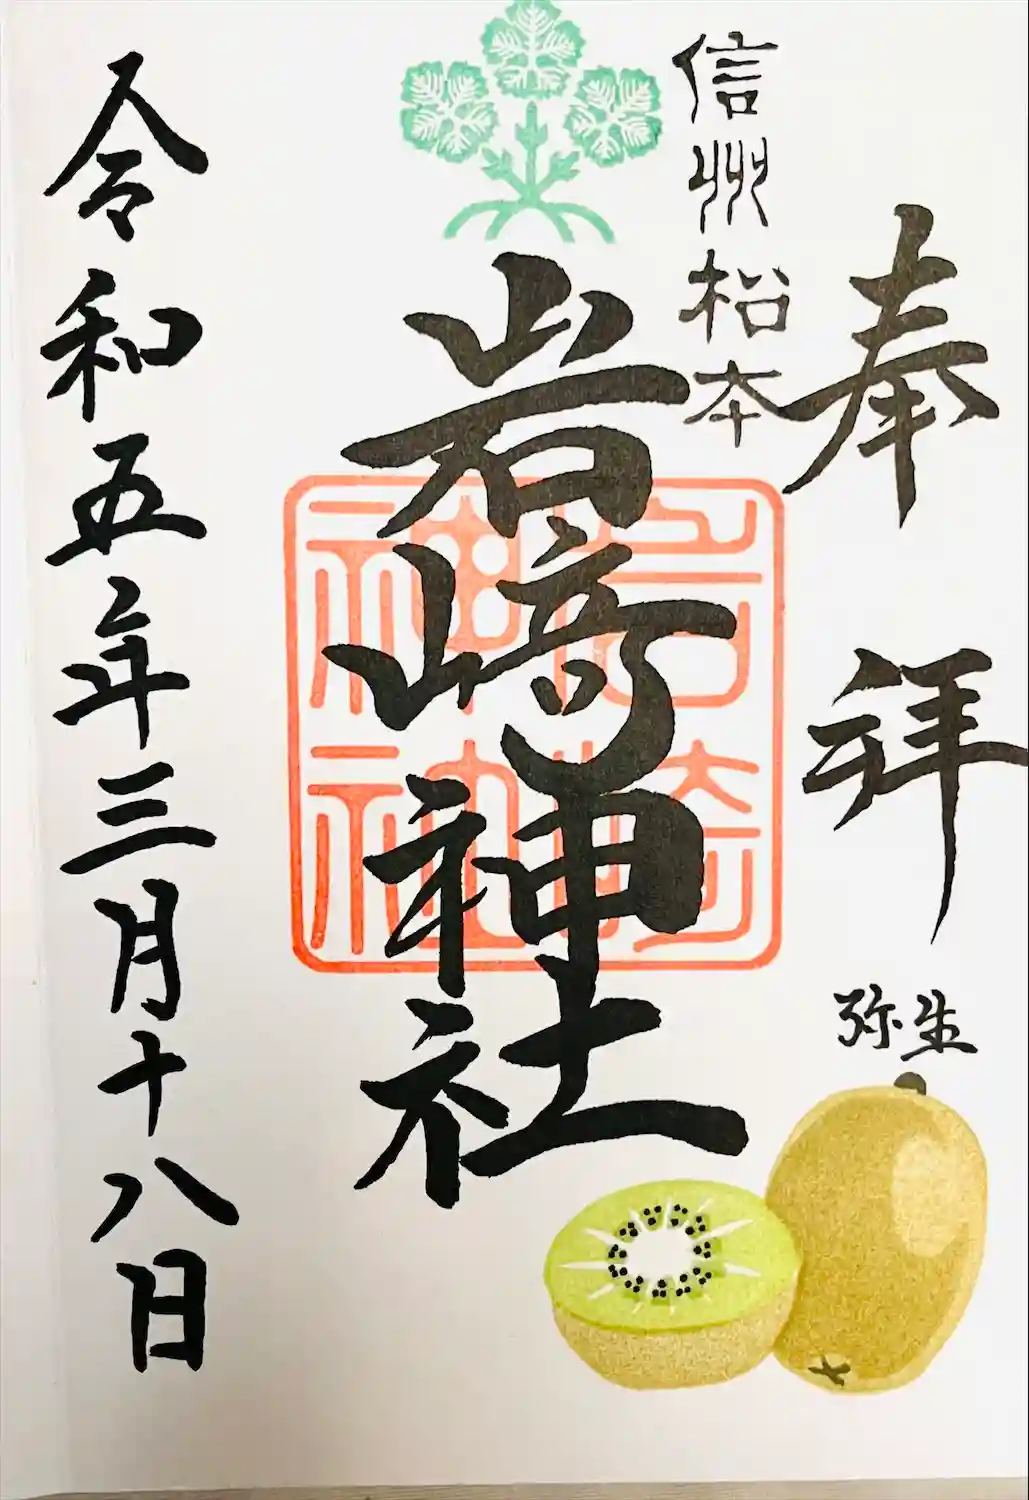 奉拝
弥生
信州松本
岩崎神社
岩崎
神社
令和五年三月十八日